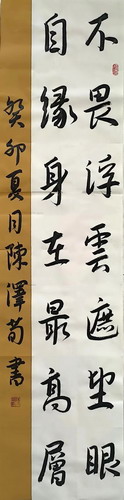 不畏浮雲遮望眼
自緣身在最高層
癸卯夏月陳澤荀書